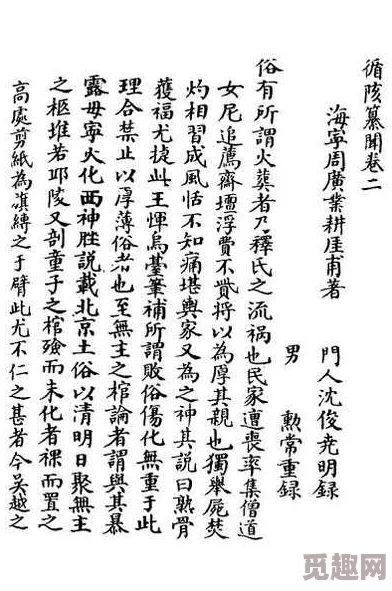 循陔纂聞卷二
海寧周廣業耕厓甫著
門人沈俊尭明録
男
勲常重録
俗有所謂火葬者乃釋氏之流祸也民家遭喪率集僧道
女尼追薦齋壇浮費不貲將以為厚其親也獨舉屍焚
灼相習成風恬不知痛堪輿家又為之神其說曰熟骨
獲福尤捷此王惲烏臺筆補所謂敗俗傷化無重于此
理合禁止以厚薄俗者也至無主之棺論者謂與其暴
露毋寧火化西神胜説載北京土俗以清明日聚無主
之柩堆若邱陵又剖童子之棺殮而未化者裸而置之
高處剪紙為旗縛之于臂此尤不仁之甚者今吴越之
觅趣网